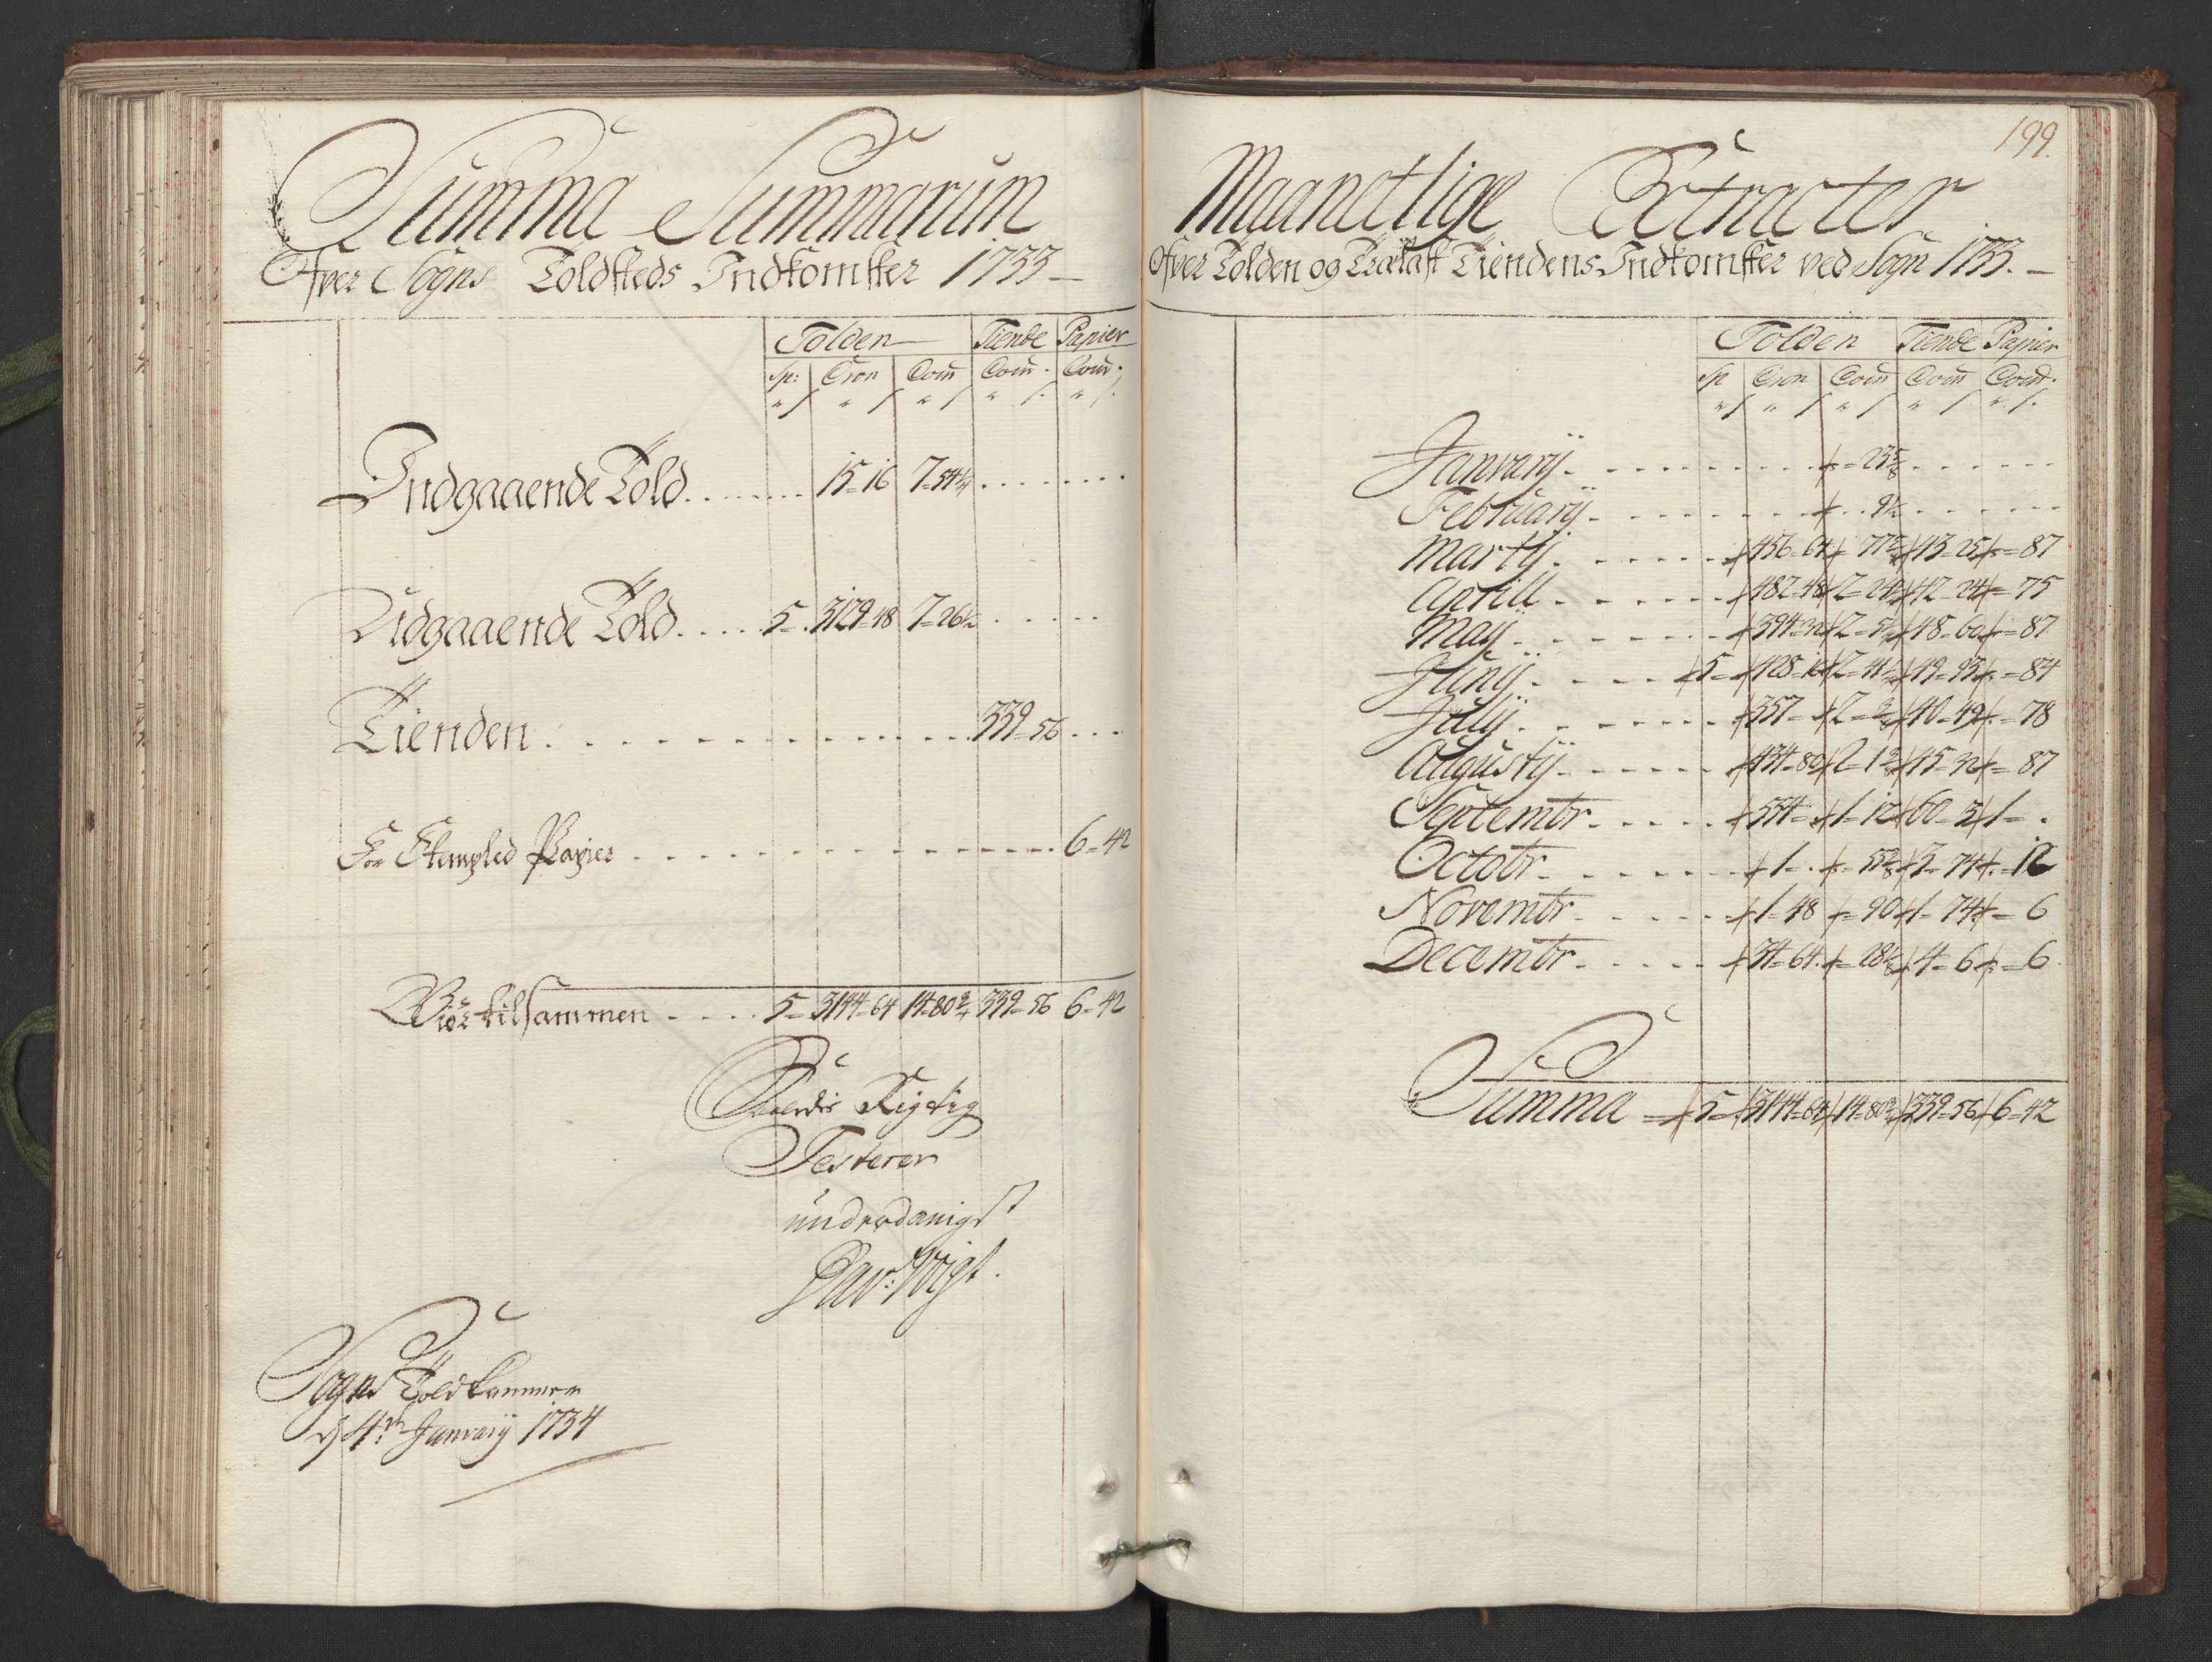 Summa Summarum
Ofver Sogns Toldsteds Indkomster 1733
Tolden Tiende Papier
Sp: Cron Cou͞r Cou͞r Cour
Indgaaende Told 15-16 7-54¼
Udgaaende Told 5 3129-48 7-26½
Tienden 339-56
For Stempled Papier 6-42
Biør tilsammen 5 3144-64 14-80¾ 339-56 6-42
Rigtig
Testerer
underdanigst
Dav: Voigt.
Sogns Toldkammer
d 4de Januarij 1734
199.
Maanetlige Extracter
Ofver Tolden og Trælast Tiendens Indkomster ved Sogn 1733.
Tolden Tiende Papier
Sp Cron Cou͞r Cou͞r Cour
Januarij
Februarij 9½
Martij 456-64 43-25 87
Aprill 482-48 42-24 75
Maij 394-32 48-60 87
Junij 5 49-93 84
Julij 357 40-49 78
Augustij 434-80 45-32 87
Septembr 554 1-12 60-3 1
Octobr 1 3-74 12
Novembr 1-48 90 1-74 6
Decembr 34-64 4-6 6
Summa 5 3144-64 14-80¾ 339-56 6-42